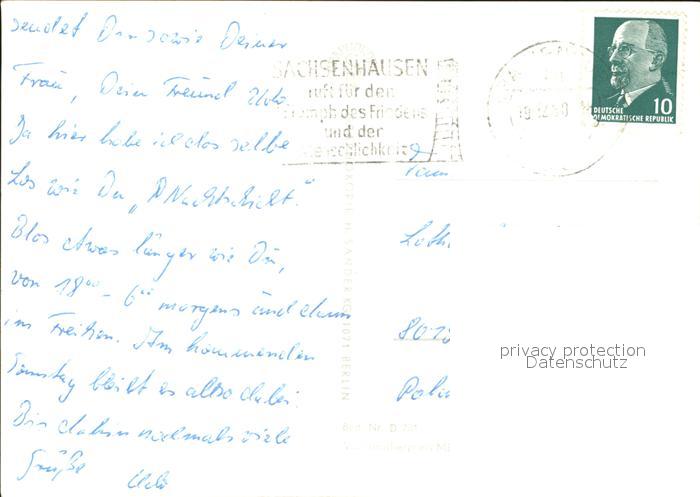 sendet Dir sowie Deiner
Frau, Dein Freund Udo.
Da hier habe ich das selbe
Los wie Du, "Nachtschicht."
Blos etwas länger wie Du,
von 18⁰⁰ - 6⁰⁰ morgens und dann
im Freien. Am kommenden
Samstag bleibt es also dabei.
Bis dahin nochmals viele
Grüße Udo
SACHSENHAUSEN
ruft für den
Triumph des Friedens
und der
Menschlichkeit
DEUTSCHE
DEMOKRATISCHE REPUBLIK
10
Fam
Loth
801
H. SANDER KG 1071 BERLIN
Best. Nr. D
privacy protection
Datenschutz